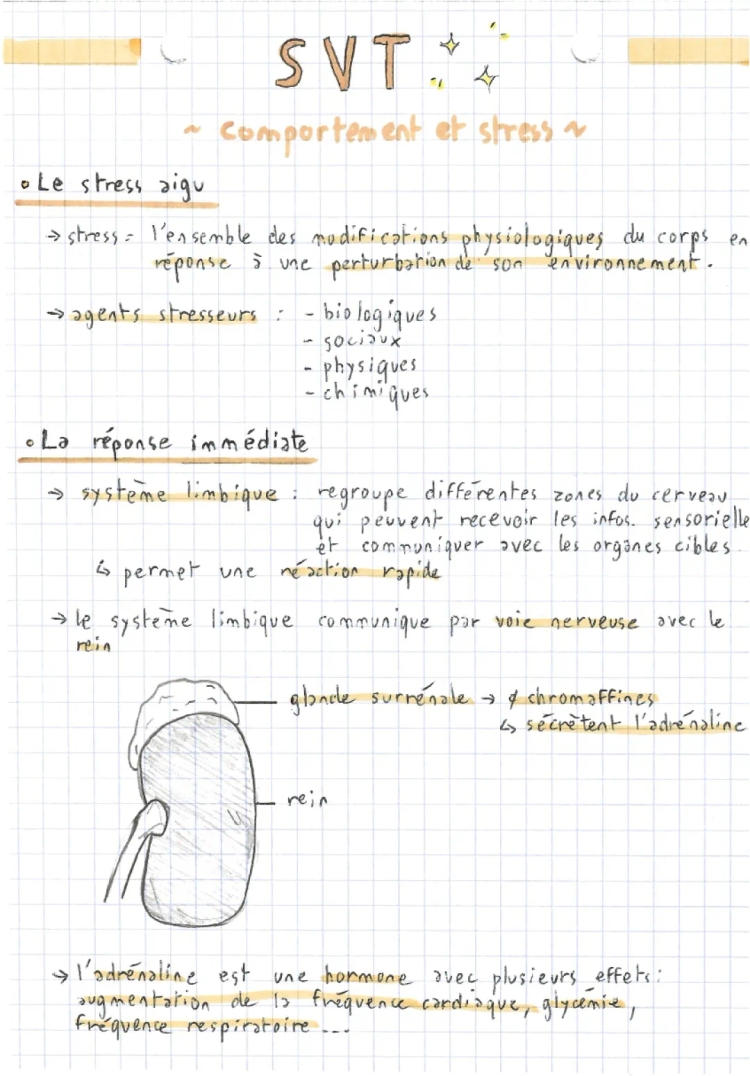 SVT
~ Comportement et stress ~
• Le stress aigu
→ stress = l'ensemble des modifications physiologiques du corps en
réponse à une perturbation de son environnement.
→ agents stresseurs : - biologiques
- sociaux
- physiques
- chimiques
• La réponse immédiate
→ système limbique : regroupe différentes zones du cerveau
qui peuvent recevoir les infos. sensorielle
et communiquer avec les organes cibles.
↳ permet une réaction rapide
→ le système limbique communique par voie nerveuse avec le
rein
glande surrénale → ¢ chromaffines
↳ sécrètent l'adrénaline
rein
→ l'adrénaline est une hormone avec plusieurs effets :
augmentation de la fréquence cardiaque, glycémie,
fréquence respiratoire ...